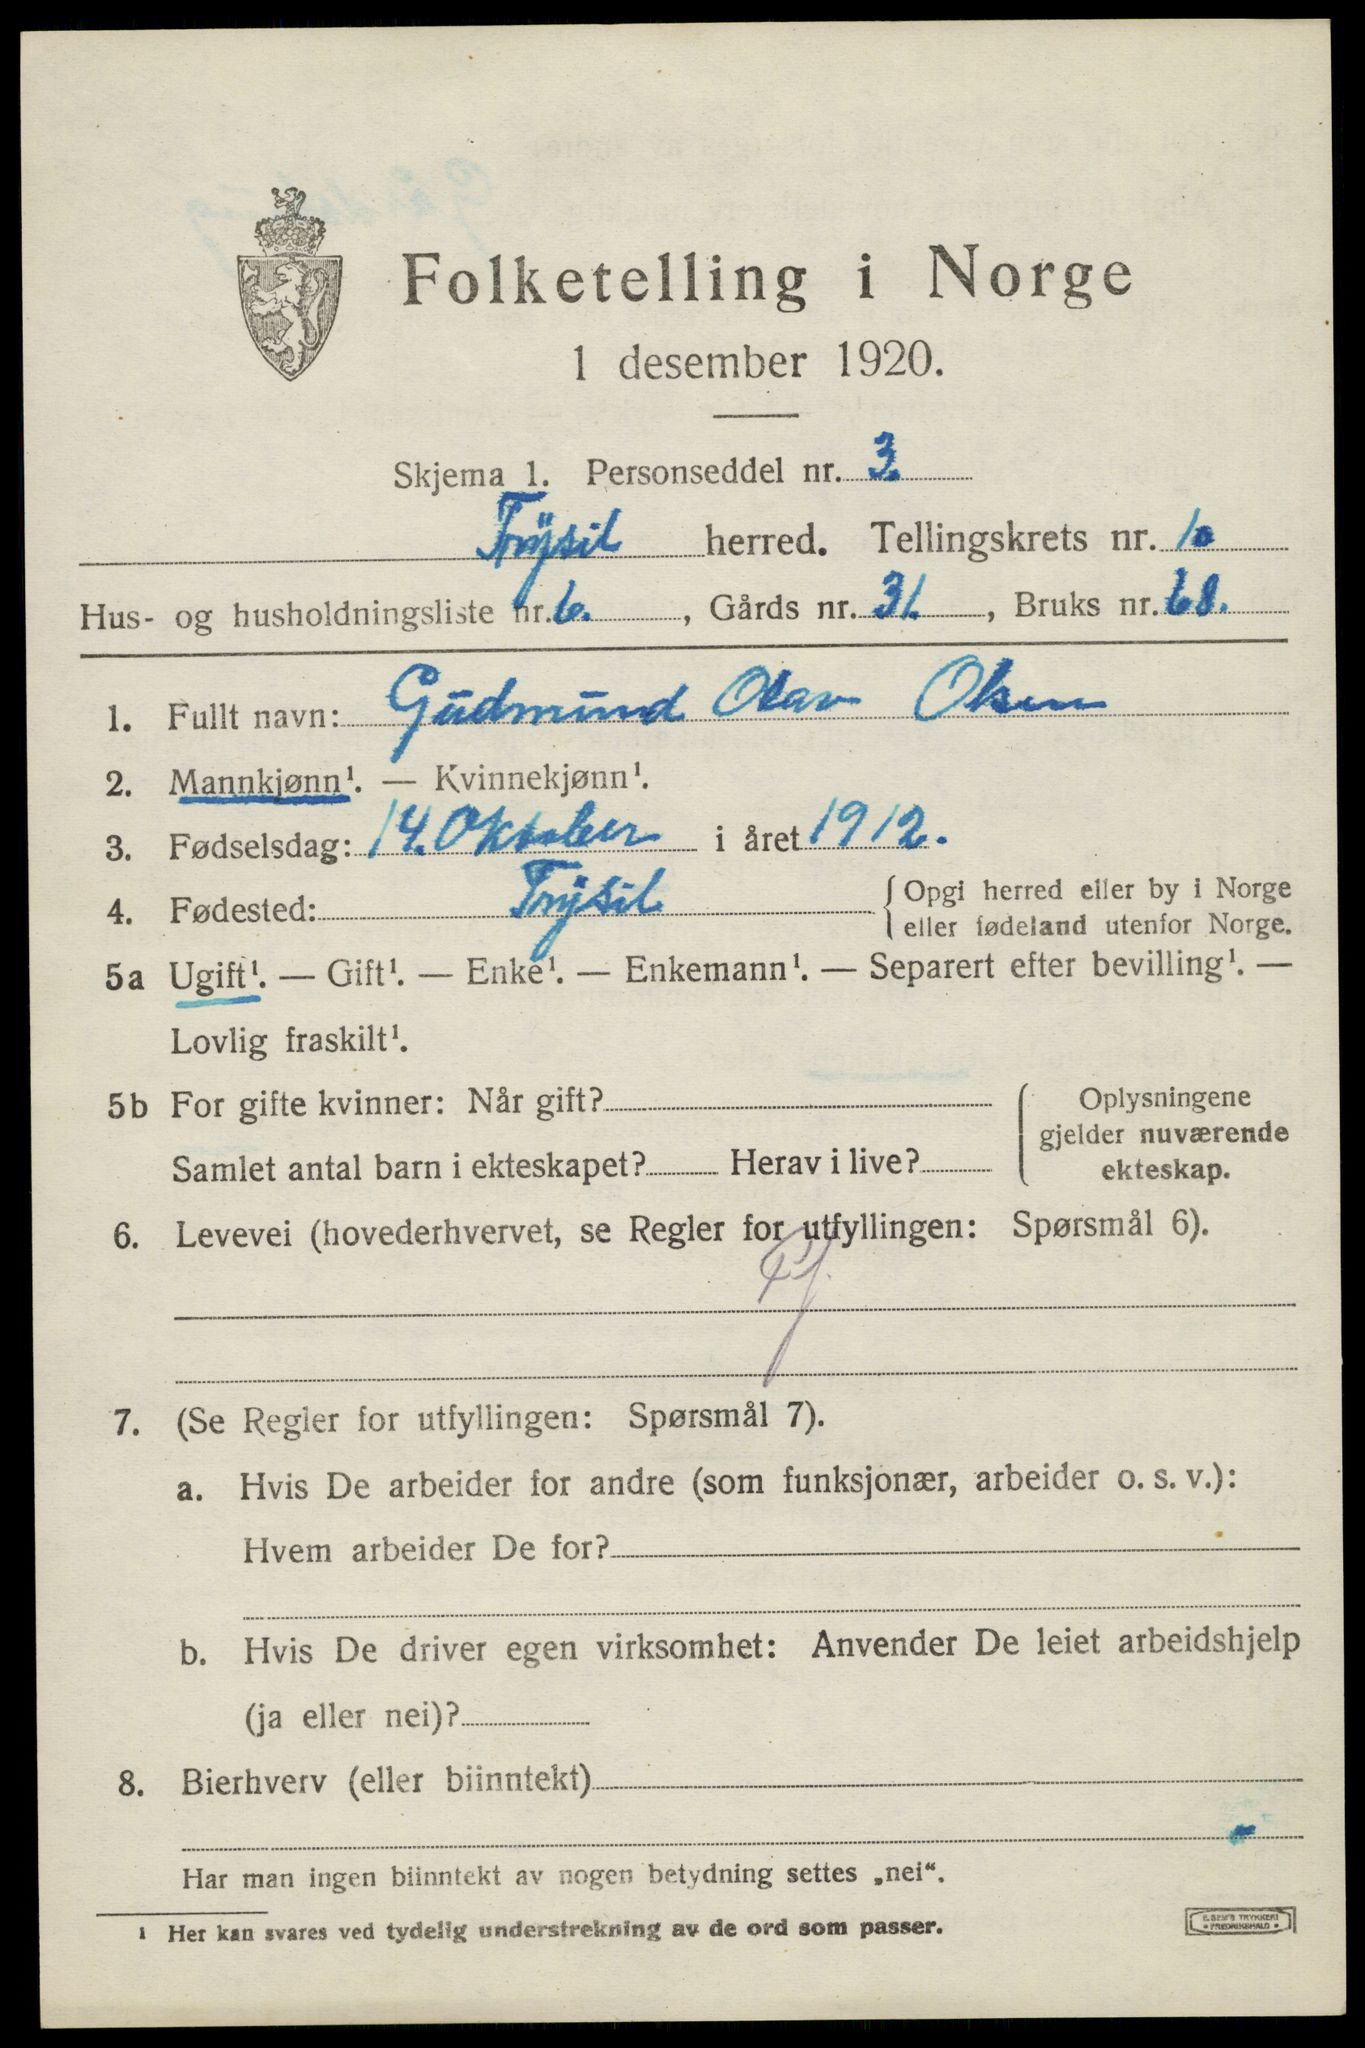 Folketelling i Norge
1 desember 1920.
Skjema 1. Personseddel nr. 3.
Trysil herred. Tellingskrets nr. 10
Hus- og husholdningsliste nr. 6. , Gårds nr. 31. , Bruks nr. 68.
1. Fullt navn: Gudmund Olav Olsen
2. Mannkjønn¹. — Kvinnekjønn¹.
3. Fødselsdag: 14. Oktober i året 1912.
4. Fødested: Trysil { Opgi herred eller by i Norge
eller fødeland utenfor Norge.
5a Ugift¹. — Gift¹. — Enke¹. — Enkemann¹. — Separert efter bevilling¹. —
Lovlig fraskilt¹.
5b For gifte kvinner: Når gift?
Samlet antal barn i ekteskapet? Herav i live?
Oplysningene
gjelder nuværende
ekteskap.
6. Levevei (hovederhvervet, se Regler for utfyllingen: Spørsmål 6).
7. (Se Regler for utfyllingen: Spørsmål 7).
a. Hvis De arbeider for andre (som funksjonær, arbeider o. s. v.):
Hvem arbeider De for?
b. Hvis De driver egen virksomhet: Anvender De leiet arbeidshjelp
(ja eller nei)?
8. Bierhverv (eller biinntekt)
-
Har man ingen biinntekt av nogen betydning settes „nei“.
¹ Her kan svares ved tydelig understrekning av de ord som passer.